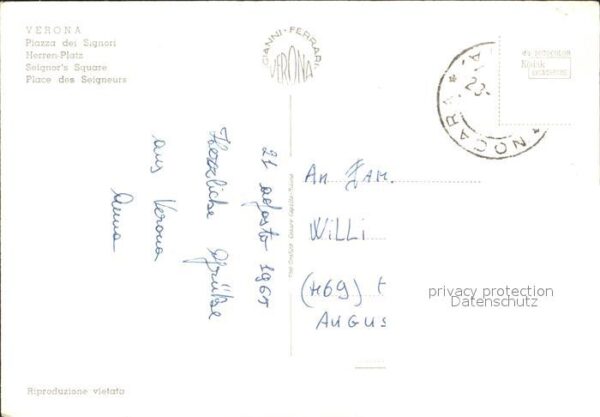 VERONA
Piazza dei Signori
Herren-Platz
Seignor's Square
Place des Seigneurs
GIANNI-FERRARI
VERONA
Kodak
NOCARA
23-
21 agosto 1965
Herzliche Grüße
aus Verona
Anna
An Fam.
WILLI
(469)
AUGUS
privacy protection
Datenschutz
Riproduzione vietata